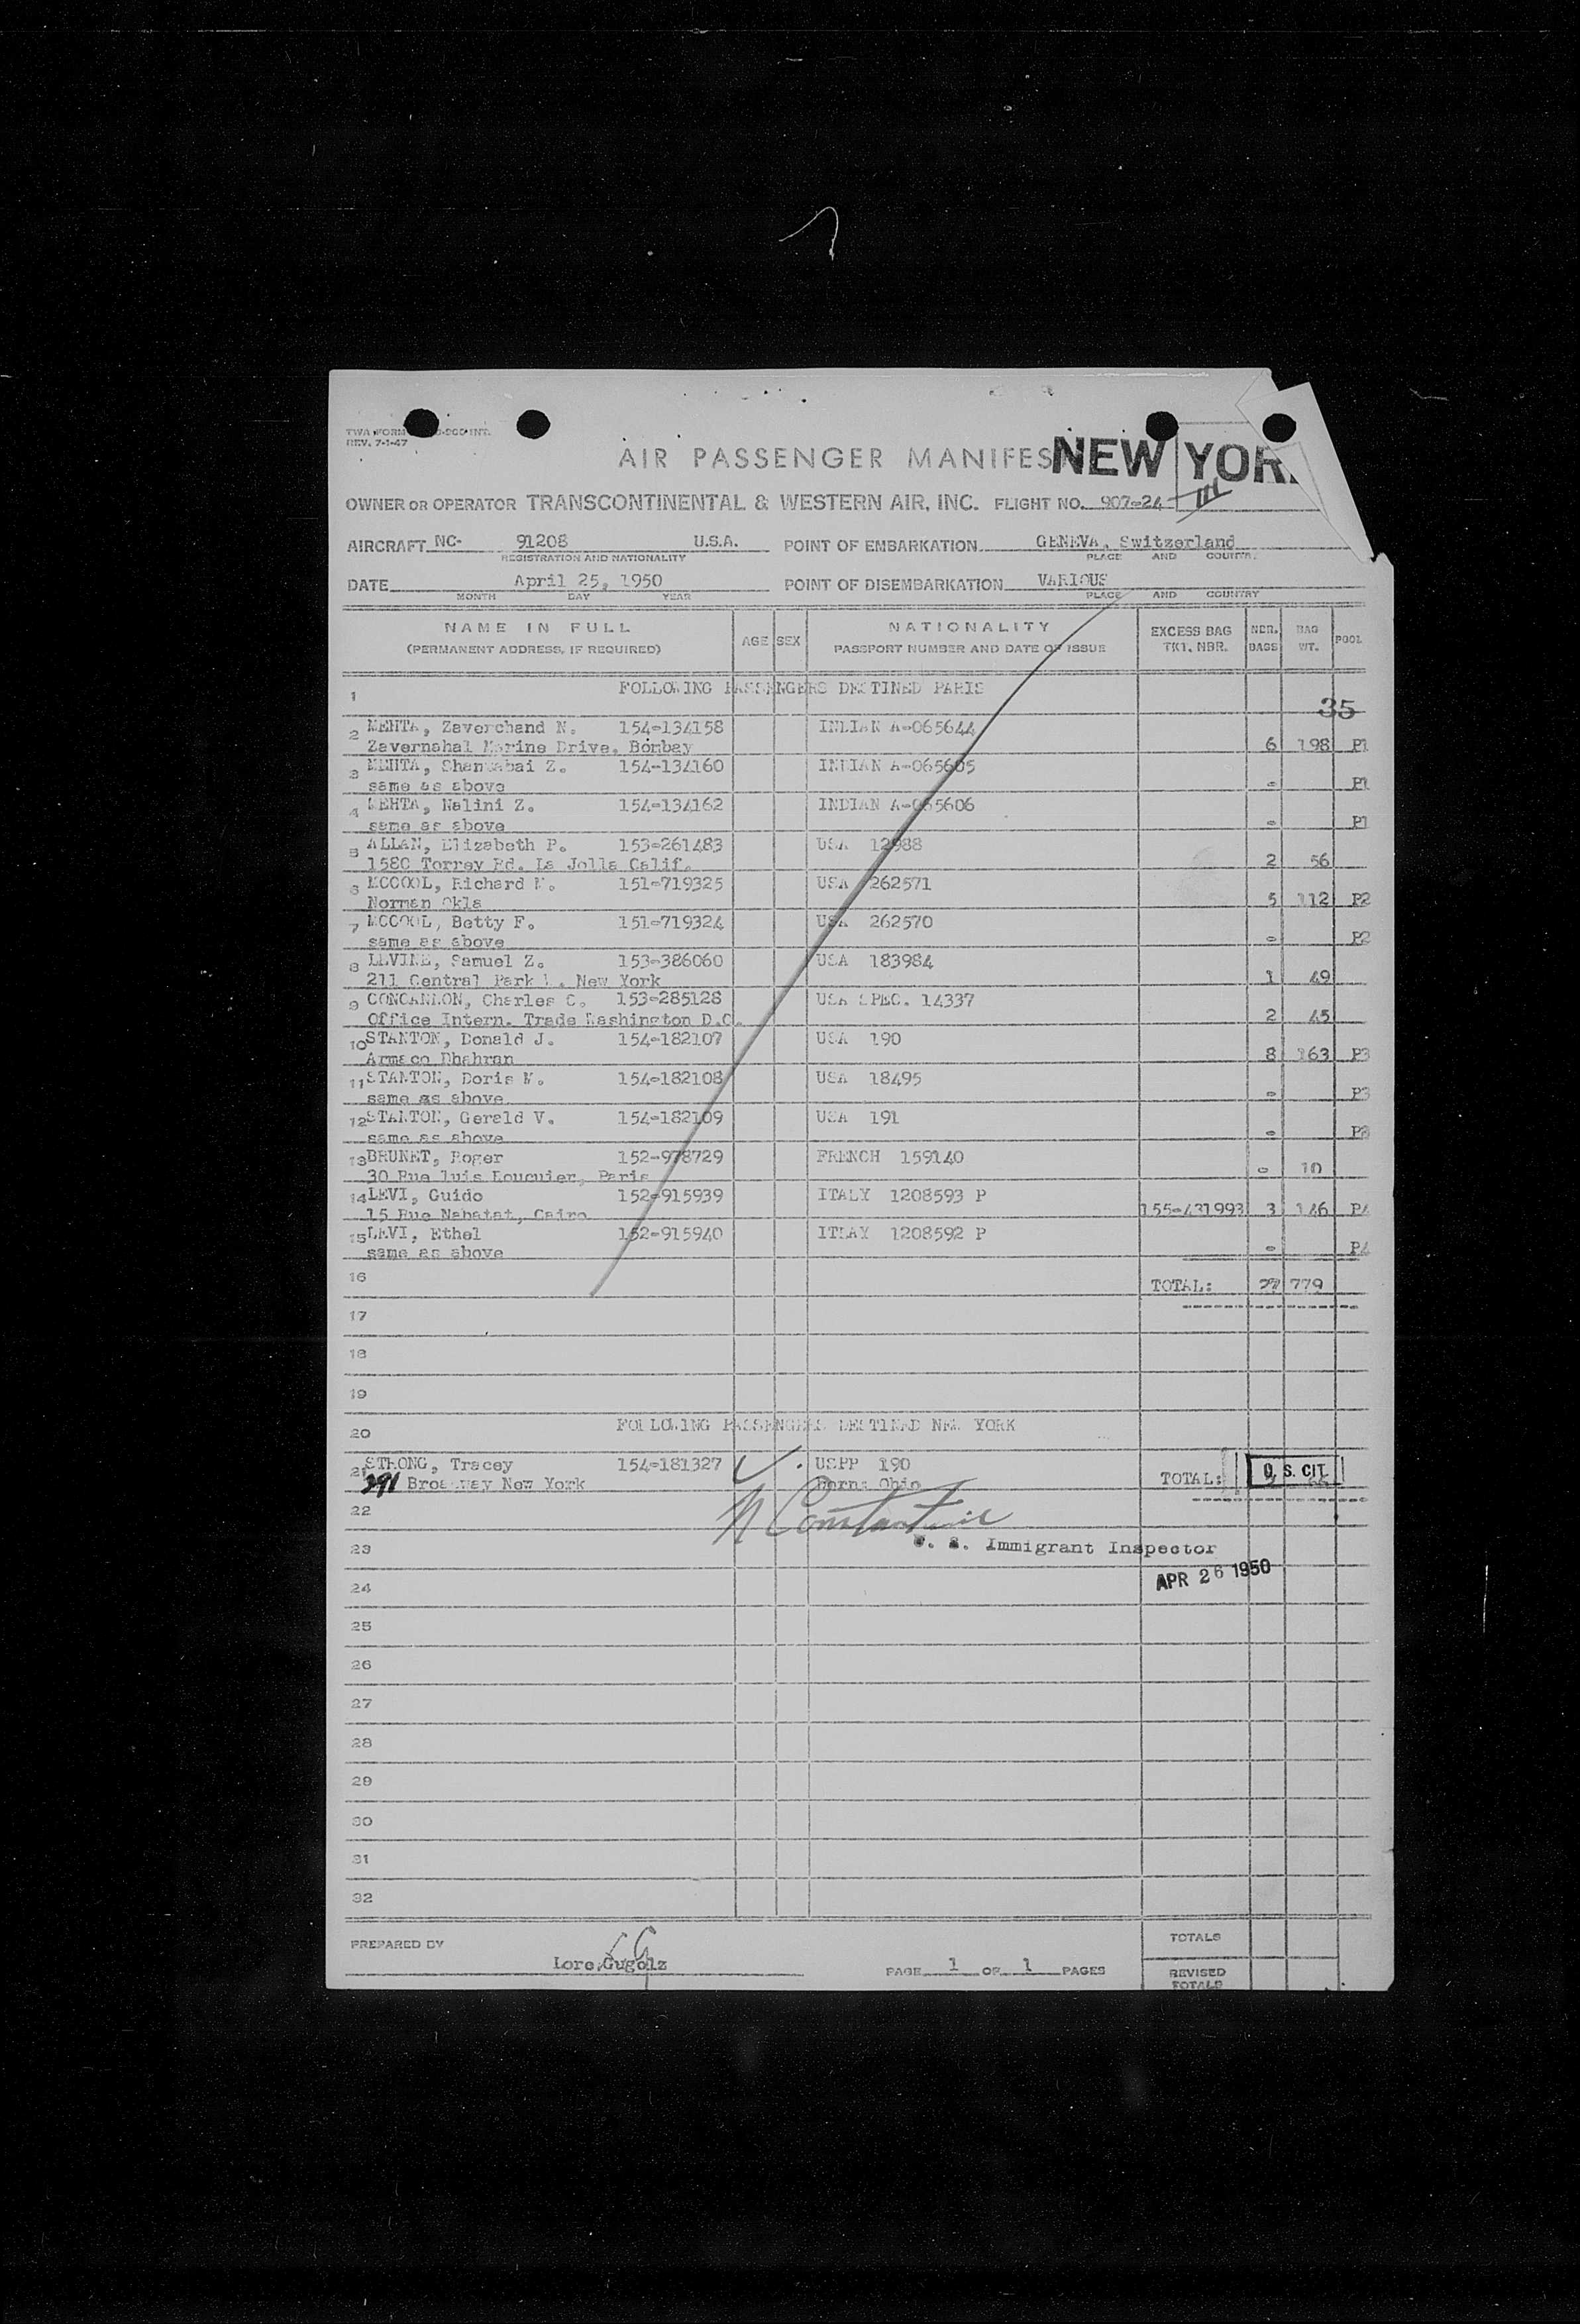 REV. 7-1-47
AIR PASSENGER MANIFES NEW YOR
OWNER OR OPERATOR TRANSCONTINENTAL & WESTERN AIR, INC. FLIGHT NO. 907-24
AIRCRAFT NC- 91208 U.S.A. POINT OF EMBARKATION GENEVA, Switzerland
REGISTRATION AND NATIONALITY PLACE AND COUNTRY
DATE April 25, 1950 POINT OF DISEMBARKATION VARIOUS
MONTH DAY YEAR PLACE AND COUNTRY
NAME IN FULL AGE SEX NATIONALITY EXCESS BAG NBR. BAG POOL
(PERMANENT ADDRESS, IF REQUIRED) PASSPORT NUMBER AND DATE OF ISSUE TKT. NBR. BAGS WT.
1 FOLLOWING PASSENGERS DESTINED PARIS
35
2 MEHTA, Zaverchand N. 154-134158 INDIAN A-065644
Zavernahal Marine Drive, Bombay 6 198 P1
3 MEHTA, Z. 154-134160 INDIAN A-065605
same as above - P1
4 MEHTA, Nalini Z. 154-134162 INDIAN A-065606
same as above - P1
5 ALLAN, Elizabeth P. 153-261483 USA 12988
1580 Torrey Rd. La Jolla Calif. 2 56
6 MCCOOL, Richard M. 151-719325 USA 262571
Norman Okla 5 112 P2
7 MCCOOL, Betty F. 151-719324 USA 262570
same as above - P2
8 LEVINE, Samuel Z. 153-386060 USA 183984
211 Central Park W. New York 1 49
9 CONCANNON, Charles C. 153-285128 USA SPEC. 14337
Office Intern. Trade Washington D.C. 2 45
10 STANTON, Donald J. 154-182107 USA 190
Armaco Dhahran 8 163 P3
11 STANTON, Doris M. 154-182108 USA 18495
same as above - P3
12 STANTON, Gerald V. 154-182109 USA 191
same as above - P3
13 BRUNET, Roger 152-978729 FRENCH 159140
30 Rue luis Loucuier, Paris - 10
14 LEVI, Guido 152-915939 ITALY 1208593 P
15 Rue Nabatat, Cairo 155-431993 3 146 P4
15 LEVI, Ethel 152-915940 ITLAY 1208592 P
same as above - P4
16 TOTAL: 27 779
17
18
19
20 FOLLOWING PASSENGERS DESTINED NEW YORK
21 STRONG, Tracey 154-181327 USPP 190
291 Broadway New York born: Ohio TOTAL: U. S. CIT.
22 N Constantine
23 U. S. Immigrant Inspector
24 APR 26 1950
25
26
27
28
29
30
31
32
PREPARED BY TOTALS
Lore Gugolz PAGE 1 OF 1 PAGES REVISED
TOTALS